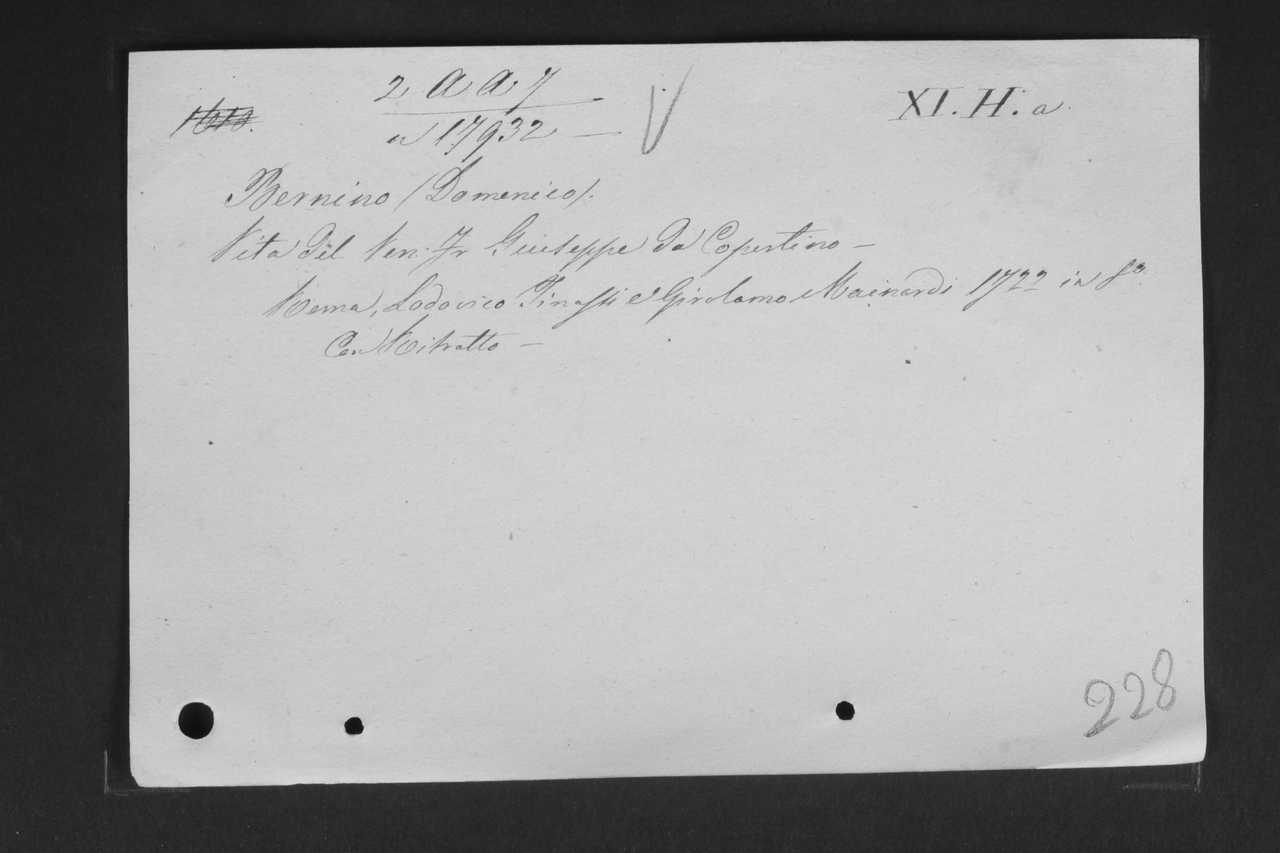 2 a a 7
a 17932 —
XI. H. a.
Bernino (Domenico).
Vita del Ven. Fr Giuseppe da Copertino —
Roma, Lodovico Tinassi e Girolamo Mainardi 1722 in 8º.
Con Ritratto —
228